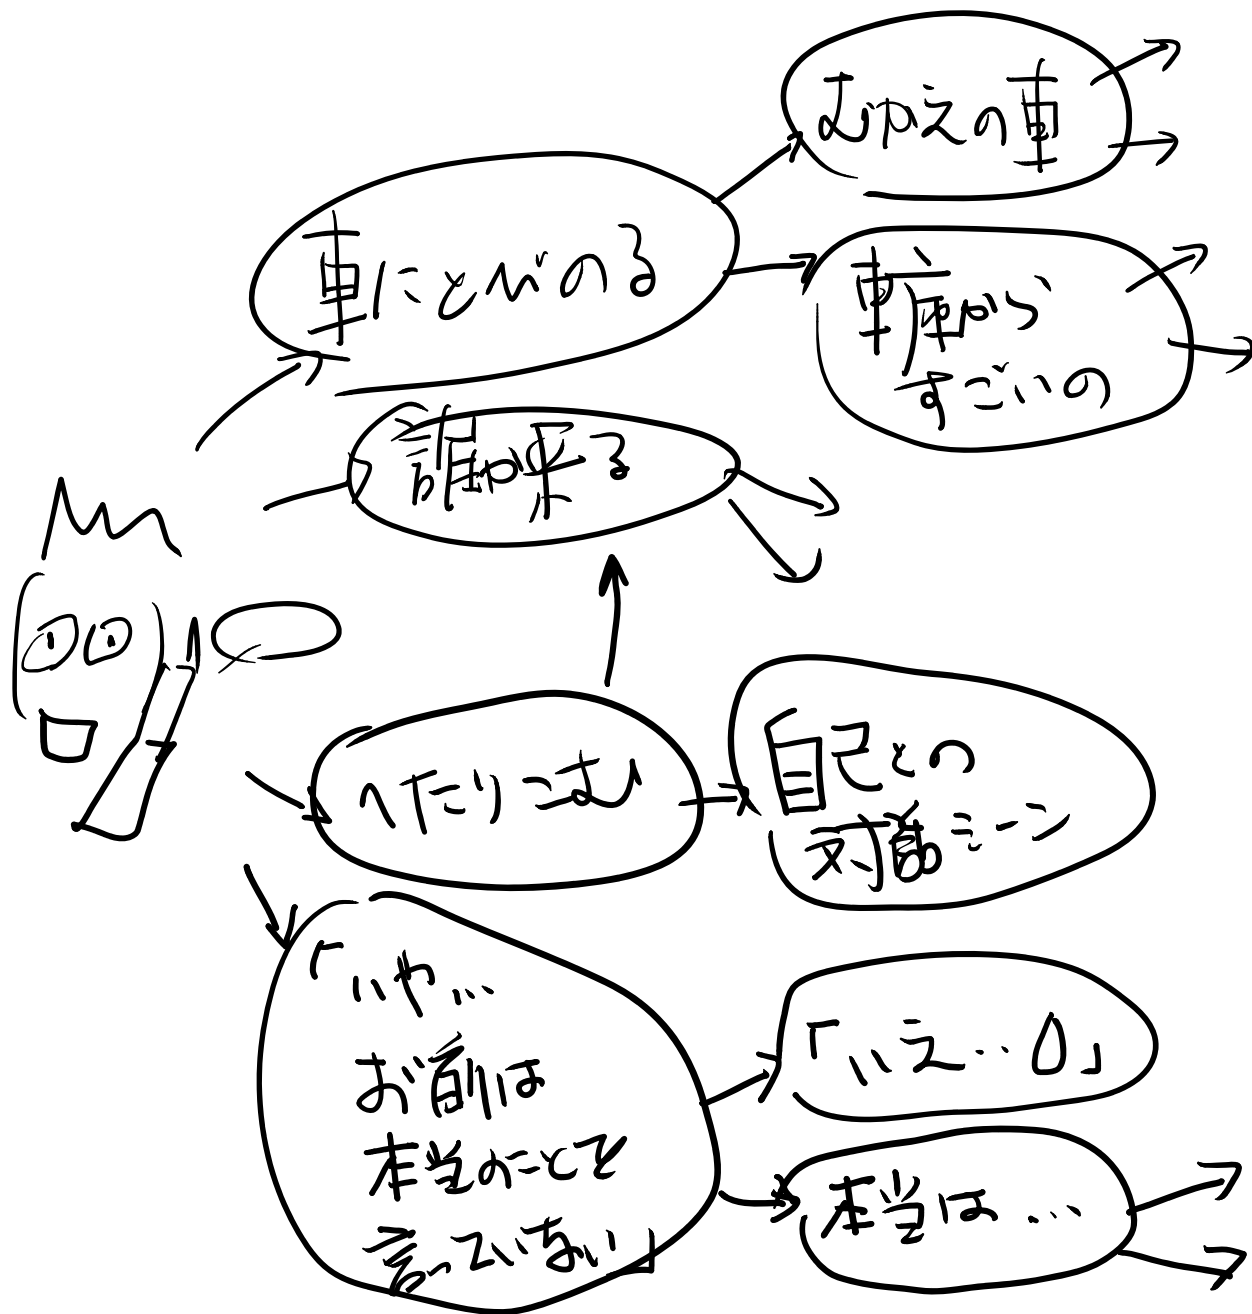 むかえの車
車にとびのる
車庫から
すごいの
誰か来る
へたりこむ
自己との
対話シーン
「いや…
お前は
本当のことを
言っていない」
「いえ…0」
本当は…